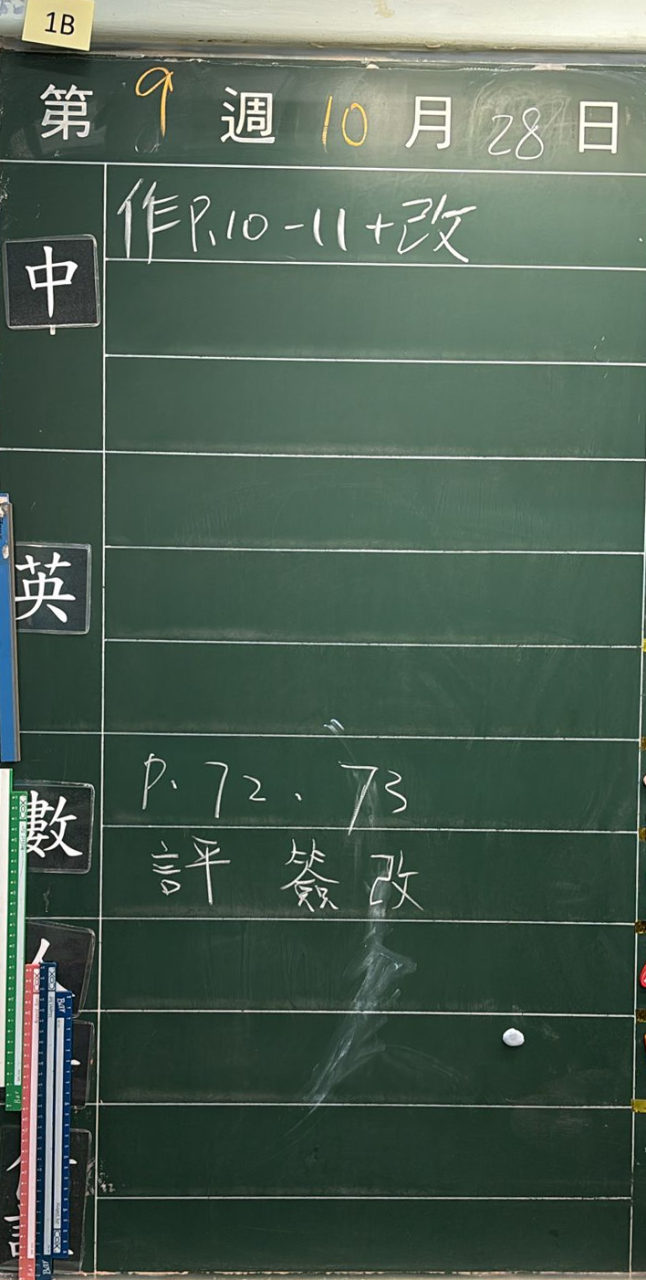 1B
第 9 週 10 月 28 日
中
作P.10-11+改
英
數
P. 72、73
評 簽 改